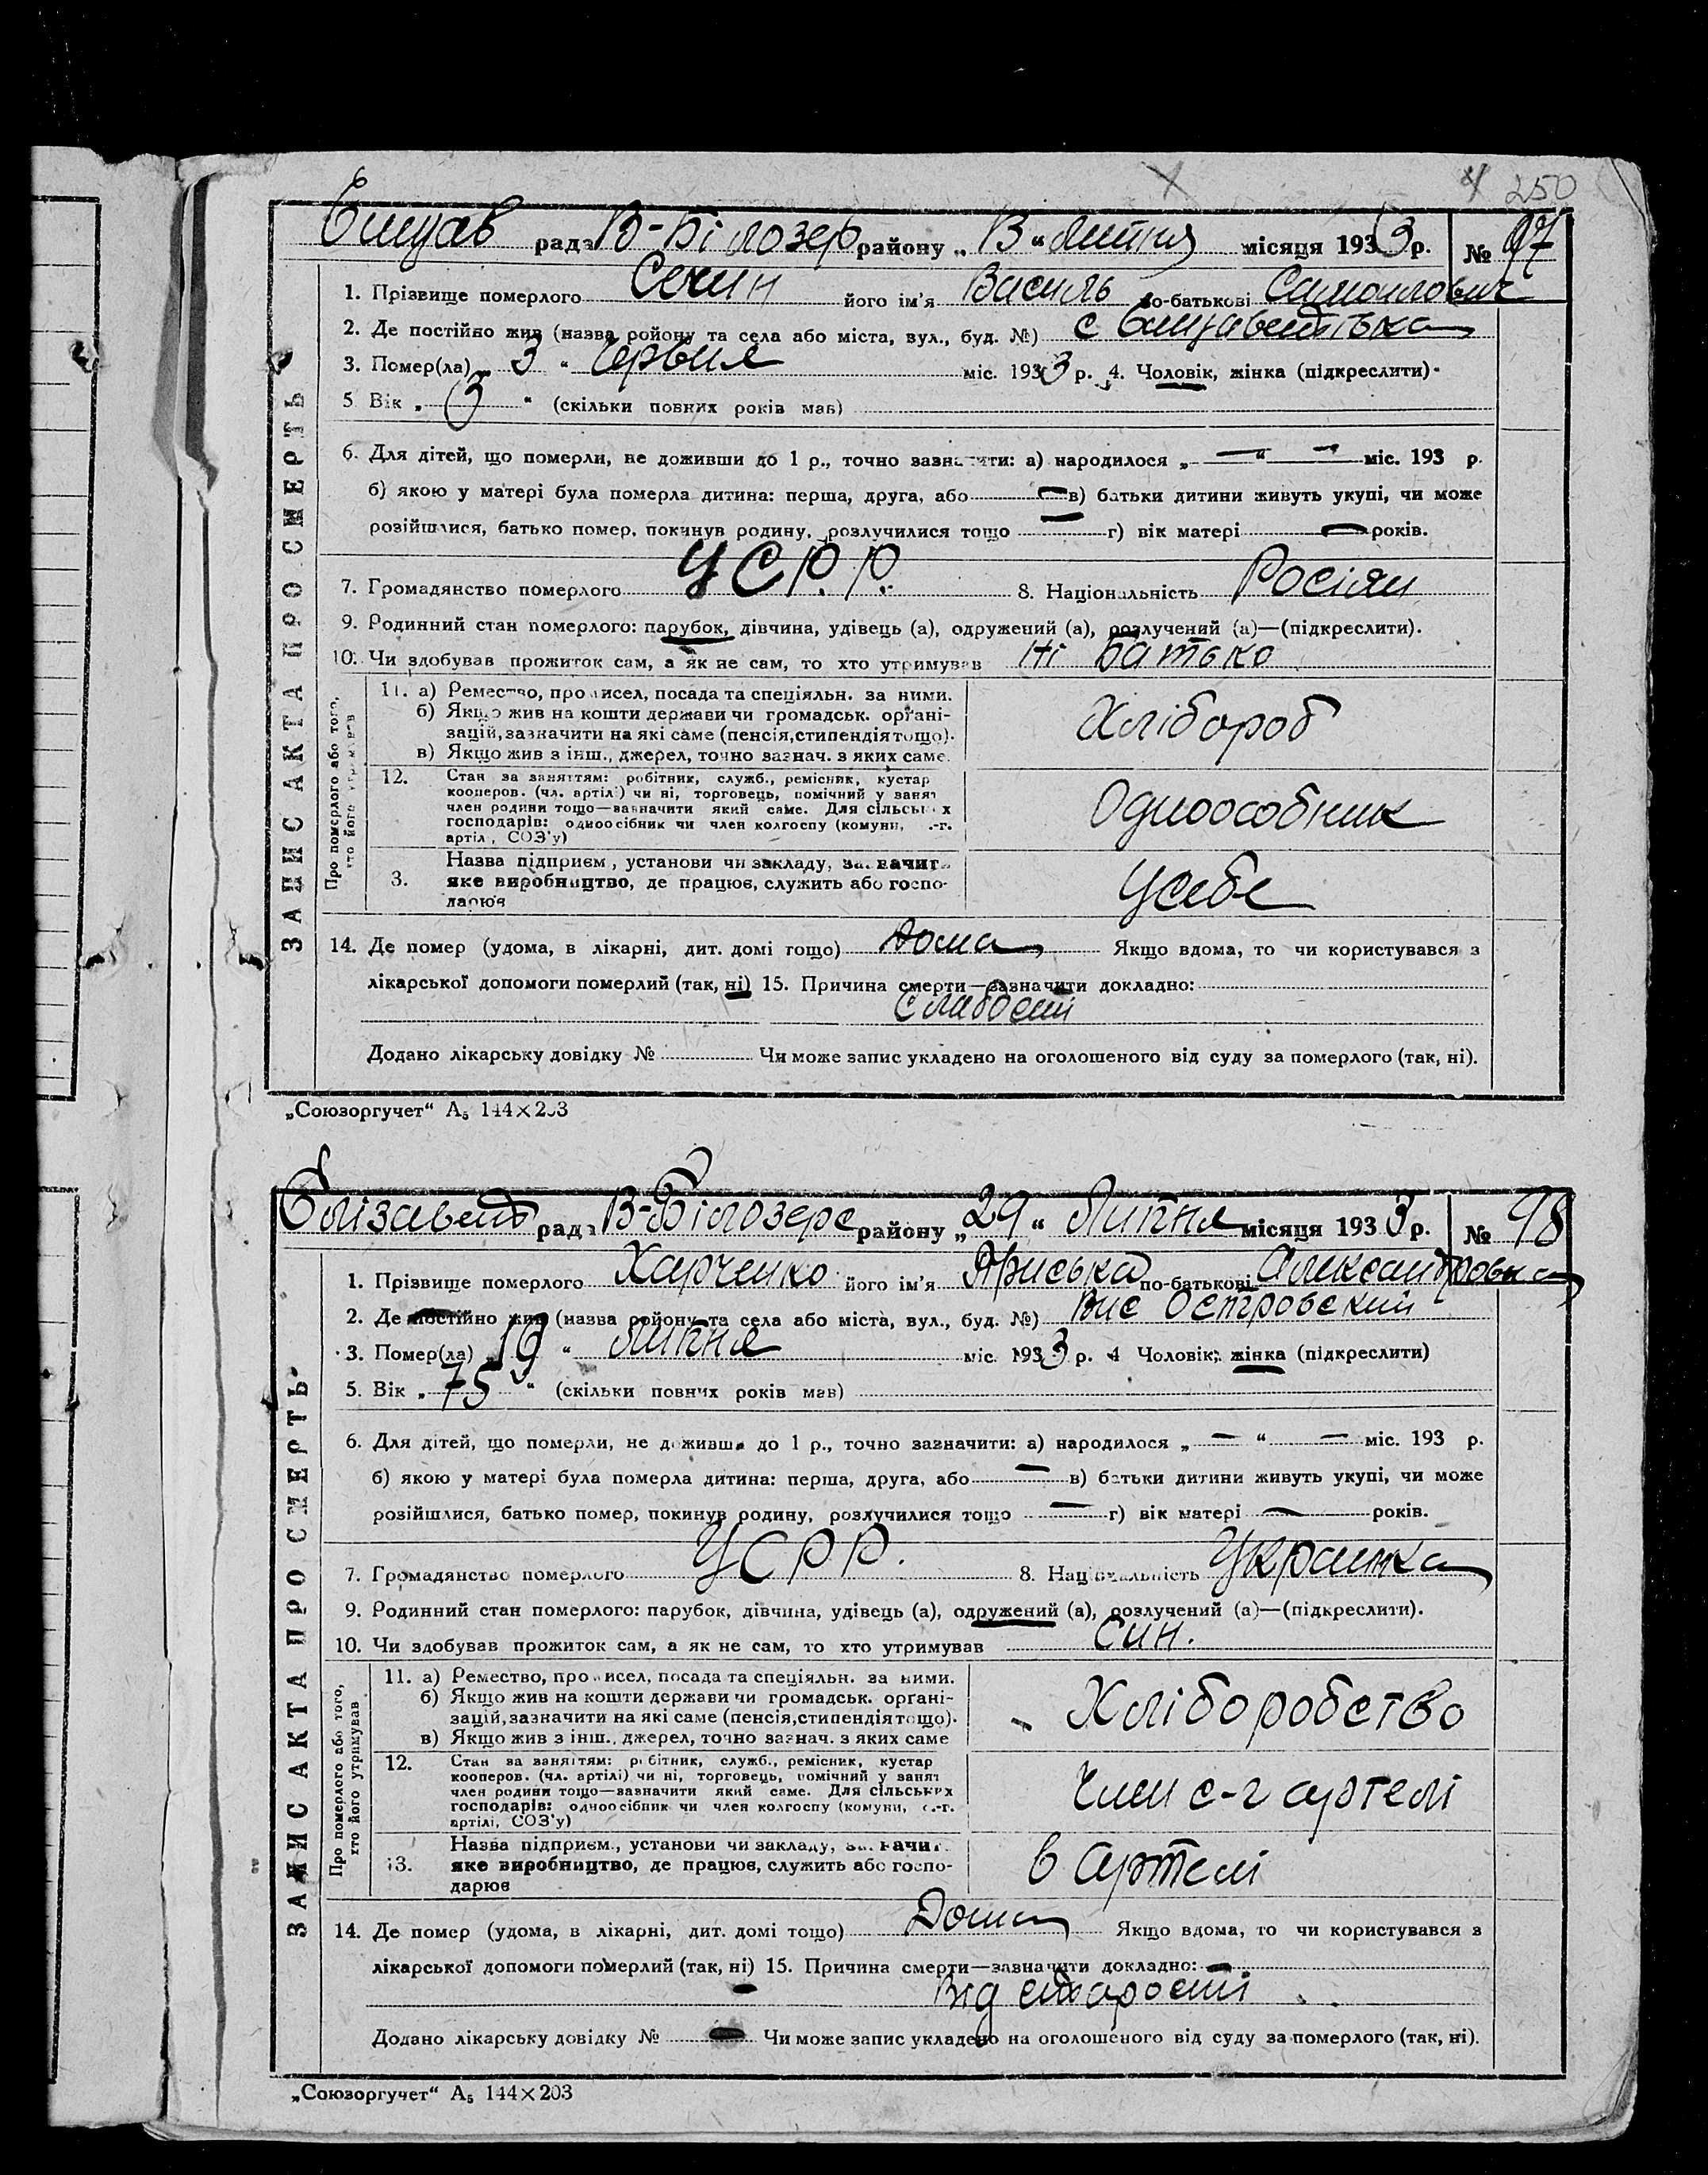 250
рада В-Білозер району „ 13 “ Липня місяця 1933 р. № 97
1. Прізвище померлого його ім’я Василь по-батькові
2. Де постійно жив (назва району та села або міста, вул., буд. №) с
3. Помер(ла) „ 3 “ Червня міс. 1933 р. 4. Чоловік, жінка (підкреслити)
5. Вік „ 3 “ (скільки повних років мав)
6. Для дітей, що померли, не доживши до 1 р., точно зазначити: а) народилося „ — “ — міс. 193 р.
б) якою у матері була померла дитина: перша, друга, або — в) батьки дитини живуть укупі, чи може
розійшлися, батько помер, покинув родину, розлучилися тощо — г) вік матері — років.
7. Громадянство померлого УСРР. 8. Національність Росіян
9. Родинний стан померлого: парубок, дівчина, удівець (а), одружений (а), розлучений (а)—(підкреслити).
10. Чи здобував прожиток сам, а як не сам, то хто утримував Ні Батько
Про померлого або того,
хто його утримував
11. а) Ремество, промисел, посада та спеціяльн. за ними.
б) Якщо жив на кошти держави чи громадськ. органі-
зацій, зазначити на які саме (пенсія, стипендія тощо).
в) Якщо жив з інш., джерел, точно зазнач. з яких саме.
Хлібороб
12. Стан за заняттям: робітник, служб., ремісник, кустар
кооперов. (чл. артілі) чи ні, торговець, помічний у занят
член родини тощо—зазначити який саме. Для сільських
господарів: одноосібник чи член колгоспу (комуни, с.-г.
артілі, СОЗ’у)
Одноособник
3. Назва підприєм., установи чи закладу, зазначит.
яке виробництво, де працює, служить або госпо-
дарює
Усебе
14. Де помер (удома, в лікарні, дит. домі тощо) Дома Якщо вдома, то чи користувався з
лікарської допомоги померлий (так, ні) 15. Причина смерти—зазначити докладно:
Слабости
Додано лікарську довідку № Чи може запис укладено на оголошеного від суду за померлого (так, ні).
ЗАПИС АКТА ПРО СМЕРТЬ
„Союзоргучет“ А5 144×203
Єлізавет рада В-Білозерс району „ 29 “ Липня місяця 1933 р. № 98
1. Прізвище померлого Харченко його ім’я Приська по-батькові Александровна
2. Де постійно жив (назва району та села або міста, вул., буд. №) Вис Островский
3. Помер(ла) 19 “ Липня міс. 1933 р. 4 Чоловік, жінка (підкреслити)
5. Вік „ 75 “ (скільки повних років мав)
6. Для дітей, що померли, не доживши до 1 р., точно зазначити: а) народилося „ — “ — міс. 193 р.
б) якою у матері була померла дитина: перша, друга, або — в) батьки дитини живуть укупі, чи може
розійшлися, батько помер, покинув родину, розлучилися тощо — г) вік матері — років.
7. Громадянство померлого УСРР. 8. Національність Украинка
9. Родинний стан померлого: парубок, дівчина, удівець (а), одружений (а), розлучений (а)—(підкреслити).
10. Чи здобував прожиток сам, а як не сам, то хто утримував Син.
Про померлого або того,
хто його утримував
11. а) Ремество, промисел, посада та спеціяльн. за ними.
б) Якщо жив на кошти держави чи громадськ. органі-
зацій, зазначити на які саме (пенсія, стипендія тощо).
в) Якщо жив з інш., джерел, точно зазнач. з яких саме
Хліборобство
12. Стан за заняттям: робітник, служб., ремісник, кустар
кооперов. (чл. артілі) чи ні, торговець, помічний у занят
член родини тощо—зазначити який саме. Для сільських
господарів: одноосібник чи член колгоспу (комуни, с.-г.
артілі, СОЗ’у)
Член с-г артелі
13. Назва підприєм., установи чи закладу, зазначит.
яке виробництво, де працює, служить або госпо-
дарює
в Артелі
14. Де помер (удома, в лікарні, дит. домі тощо) Дома Якщо вдома, то чи користувався з
лікарської допомоги померлий (так, ні) 15. Причина смерти—зазначити докладно: —
Від старости
Додано лікарську довідку № — Чи може запис укладено на оголошеного від суду за померлого (так, ні).
ЗАПИС АКТА ПРО СМЕРТЬ
„Союзоргучет“ А5 144×203